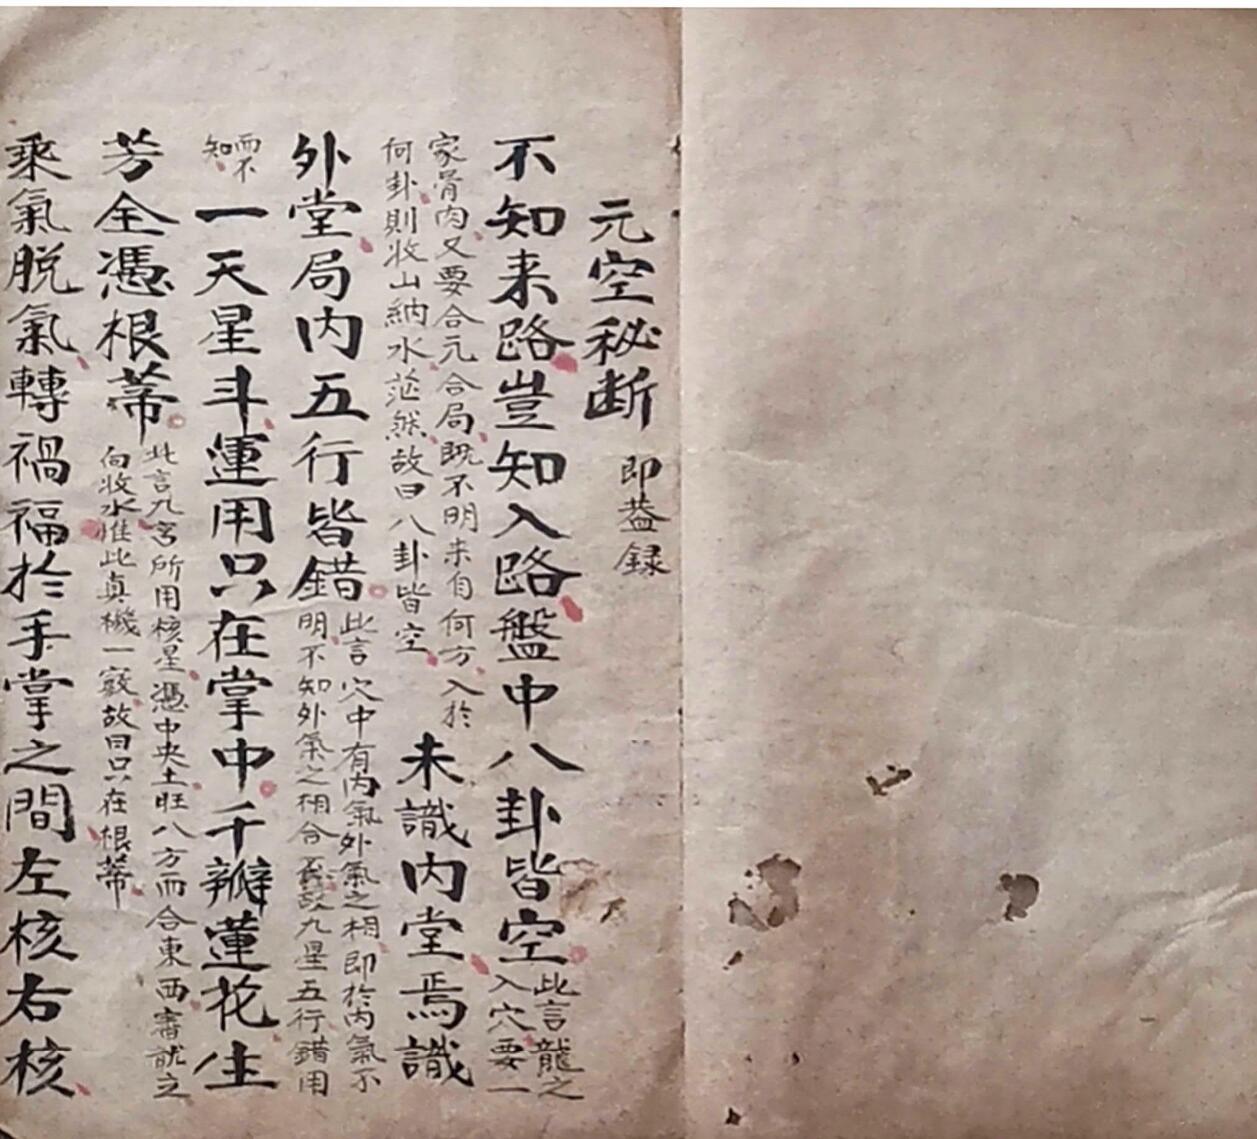 元空秘断 即葢録
不知来路豈知入路盤中八卦皆空 此言龍之
入穴要一
家骨肉又要合元合局既不明来自何方入於
何卦則收山納水茫然故曰八卦皆空
未識内堂焉識
外堂局内五行皆錯 此言穴中有内氣外氣之相即於内氣不
明不知外氣之相合故九星五行錯用
而不
知
一天星斗運用只在掌中千瓣蓮花生
芳全憑根蒂 此言九宮所用核星憑中央土旺八方而合東西審之
向收水惟此真機一竅故曰只在根蒂
乘氣脱氣轉禍福於手掌之間左核右核